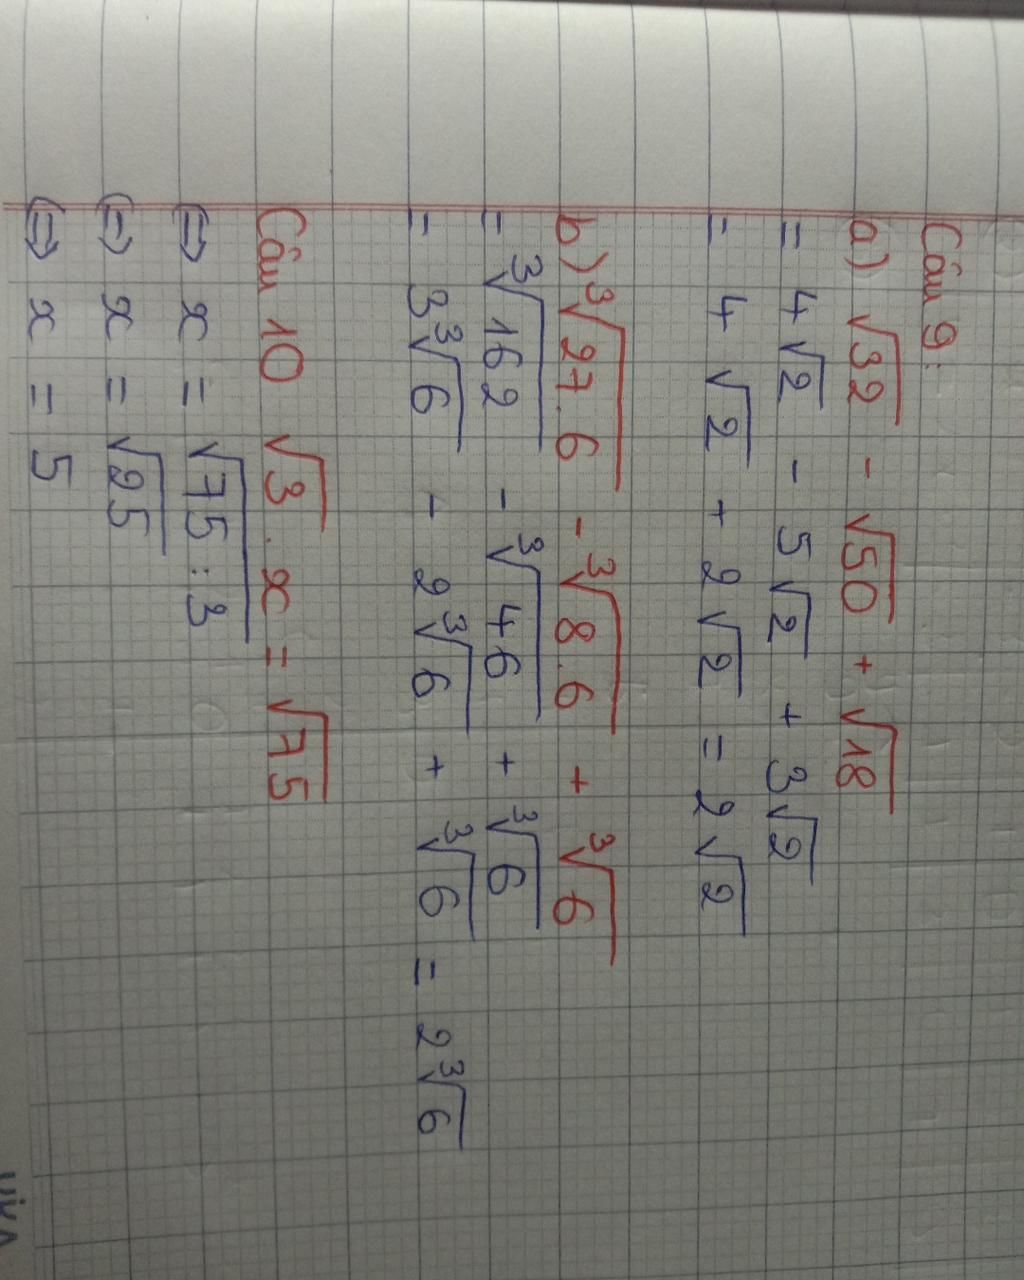 Câu 9:
a) √32 - √50 + √18
= 4√2 - 5√2 + 3√2
= 4√2 + 2√2 = 2√2
b) ∛27.6 - ∛8.6 + ∛6
= ∛162 - ∛46 + ∛6
= 3∛6 - 2∛6 + ∛6 = 2∛6
Câu 10 √3 . x = √75
⇔ x = √75:3
⇔ x = √25
⇔ x = 5